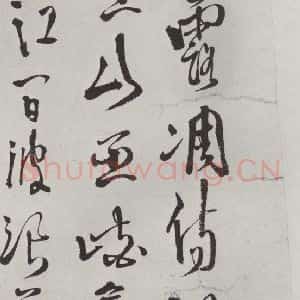 露凋傷
山巫峽
江間波浪
Shufawang.CN